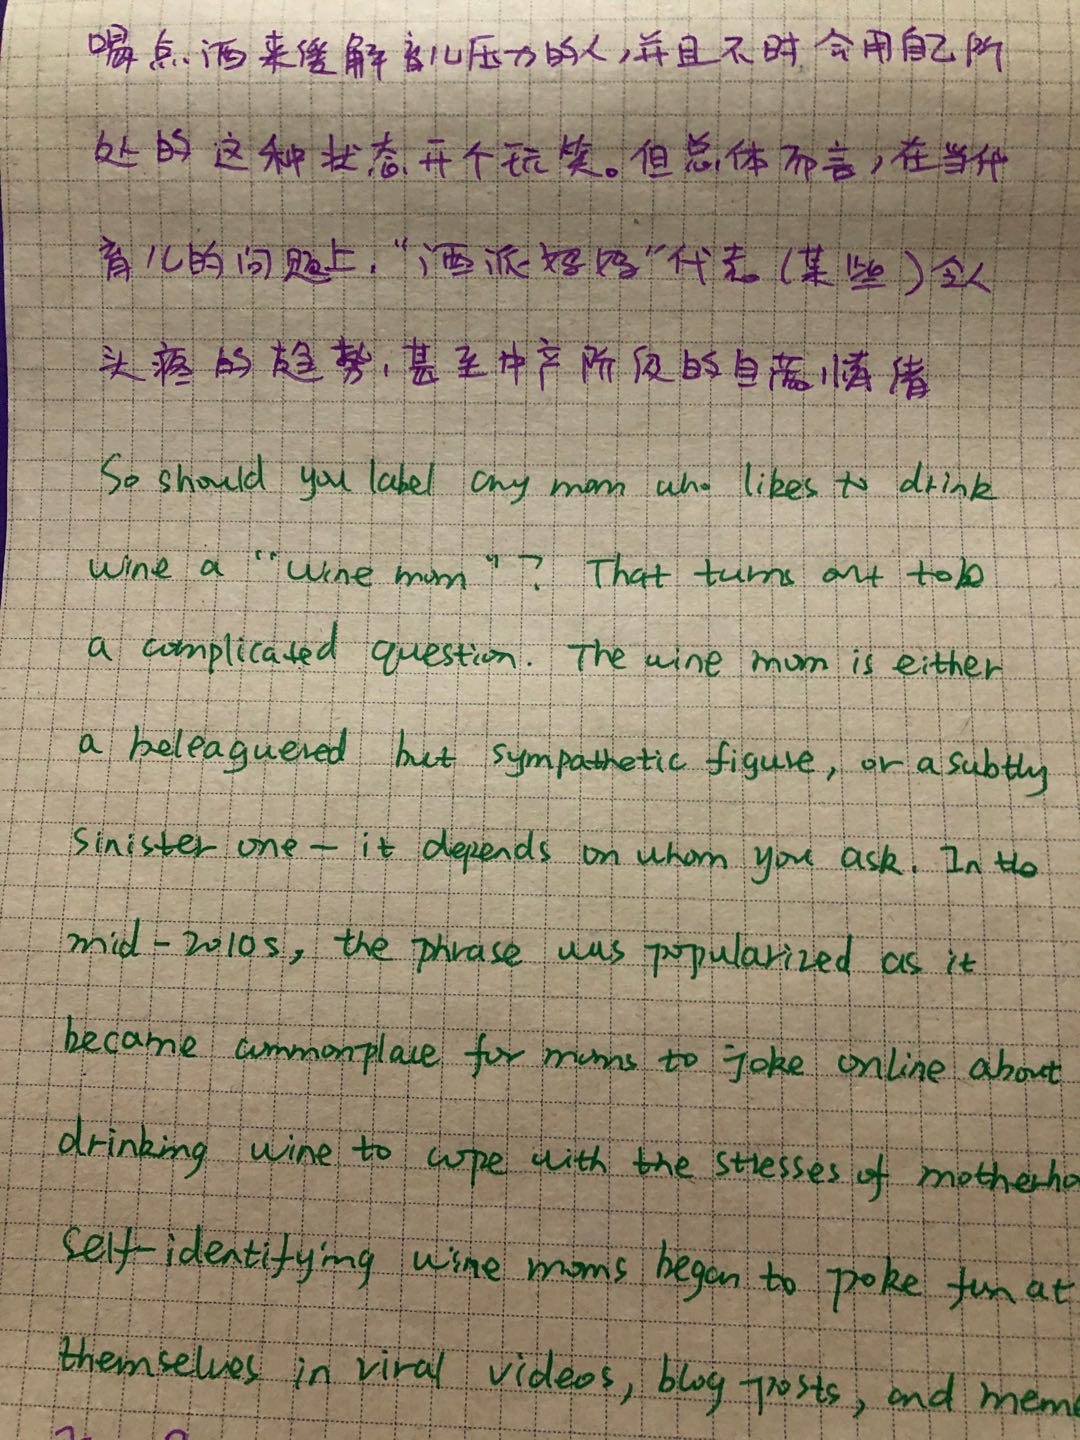 喝点酒来缓解育儿压力的人,并且不时会用自己所
处的这种状态开个玩笑。但总体而言,在当代
育儿的问题上,“酒派妈妈”代表(某些)令人
头疼的趋势,甚至中产阶段的自满情绪
So should you label any mom who likes to drink
wine a “wine mom”? That turns out to be
a complicated question. The wine mom is either
a beleaguered but sympathetic figure, or a subtly
sinister one - it depends on whom you ask. In the
mid-2010s, the phrase was popularized as it
became commonplace for moms to joke online about
drinking wine to cope with the stresses of motherho
Self-identifying wine moms began to poke fun at
themselves in viral videos, blog posts, and meme